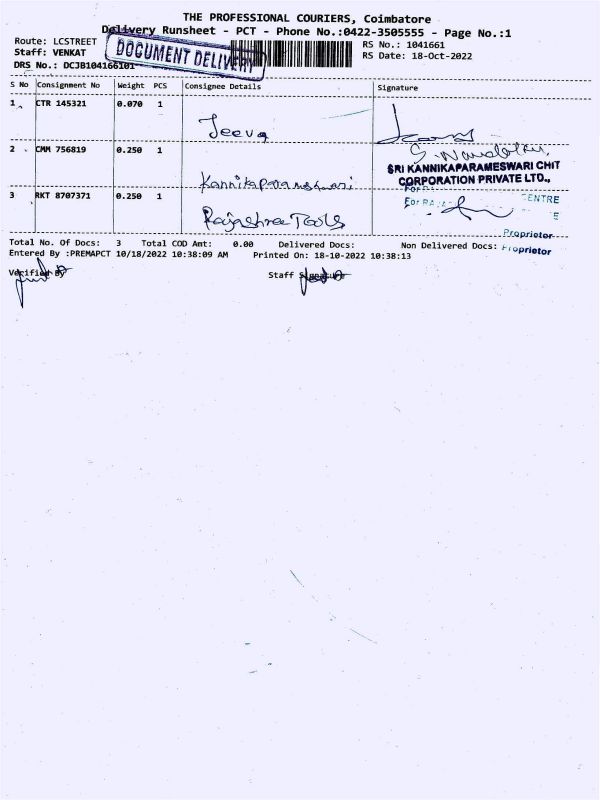 THE PROFESSIONAL COURIERS, Coimbatore
Delivery Runsheet - PCT - Phone No.:0422-3505555 - Page No.:1
Route: LCSTREET
RS No.: 1041661
Staff: VENKAT
RS Date: 18-Oct-2022
DRS No.: DCJB104166101
DOCUMENT DELIVERY
S No Consignment No Weight PCS Consignee Details Signature
1 CTR 145321 0.070 1
Jeeva
2 CMM 756819 0.250 1
SRI KANNIKAPARAMESWARI CHIT
CORPORATION PRIVATE LTD.,
Kannikaparameshwari
3 RKT 8707371 0.250 1
CENTRE
Rajashree Tools
Proprietor
Total No. Of Docs: 3 Total COD Amt: 0.00 Delivered Docs: Non Delivered Docs:
Proprietor
Entered By :PREMAPCT 10/18/2022 10:38:09 AM Printed On: 18-10-2022 10:38:13
Verified By
Staff Signature